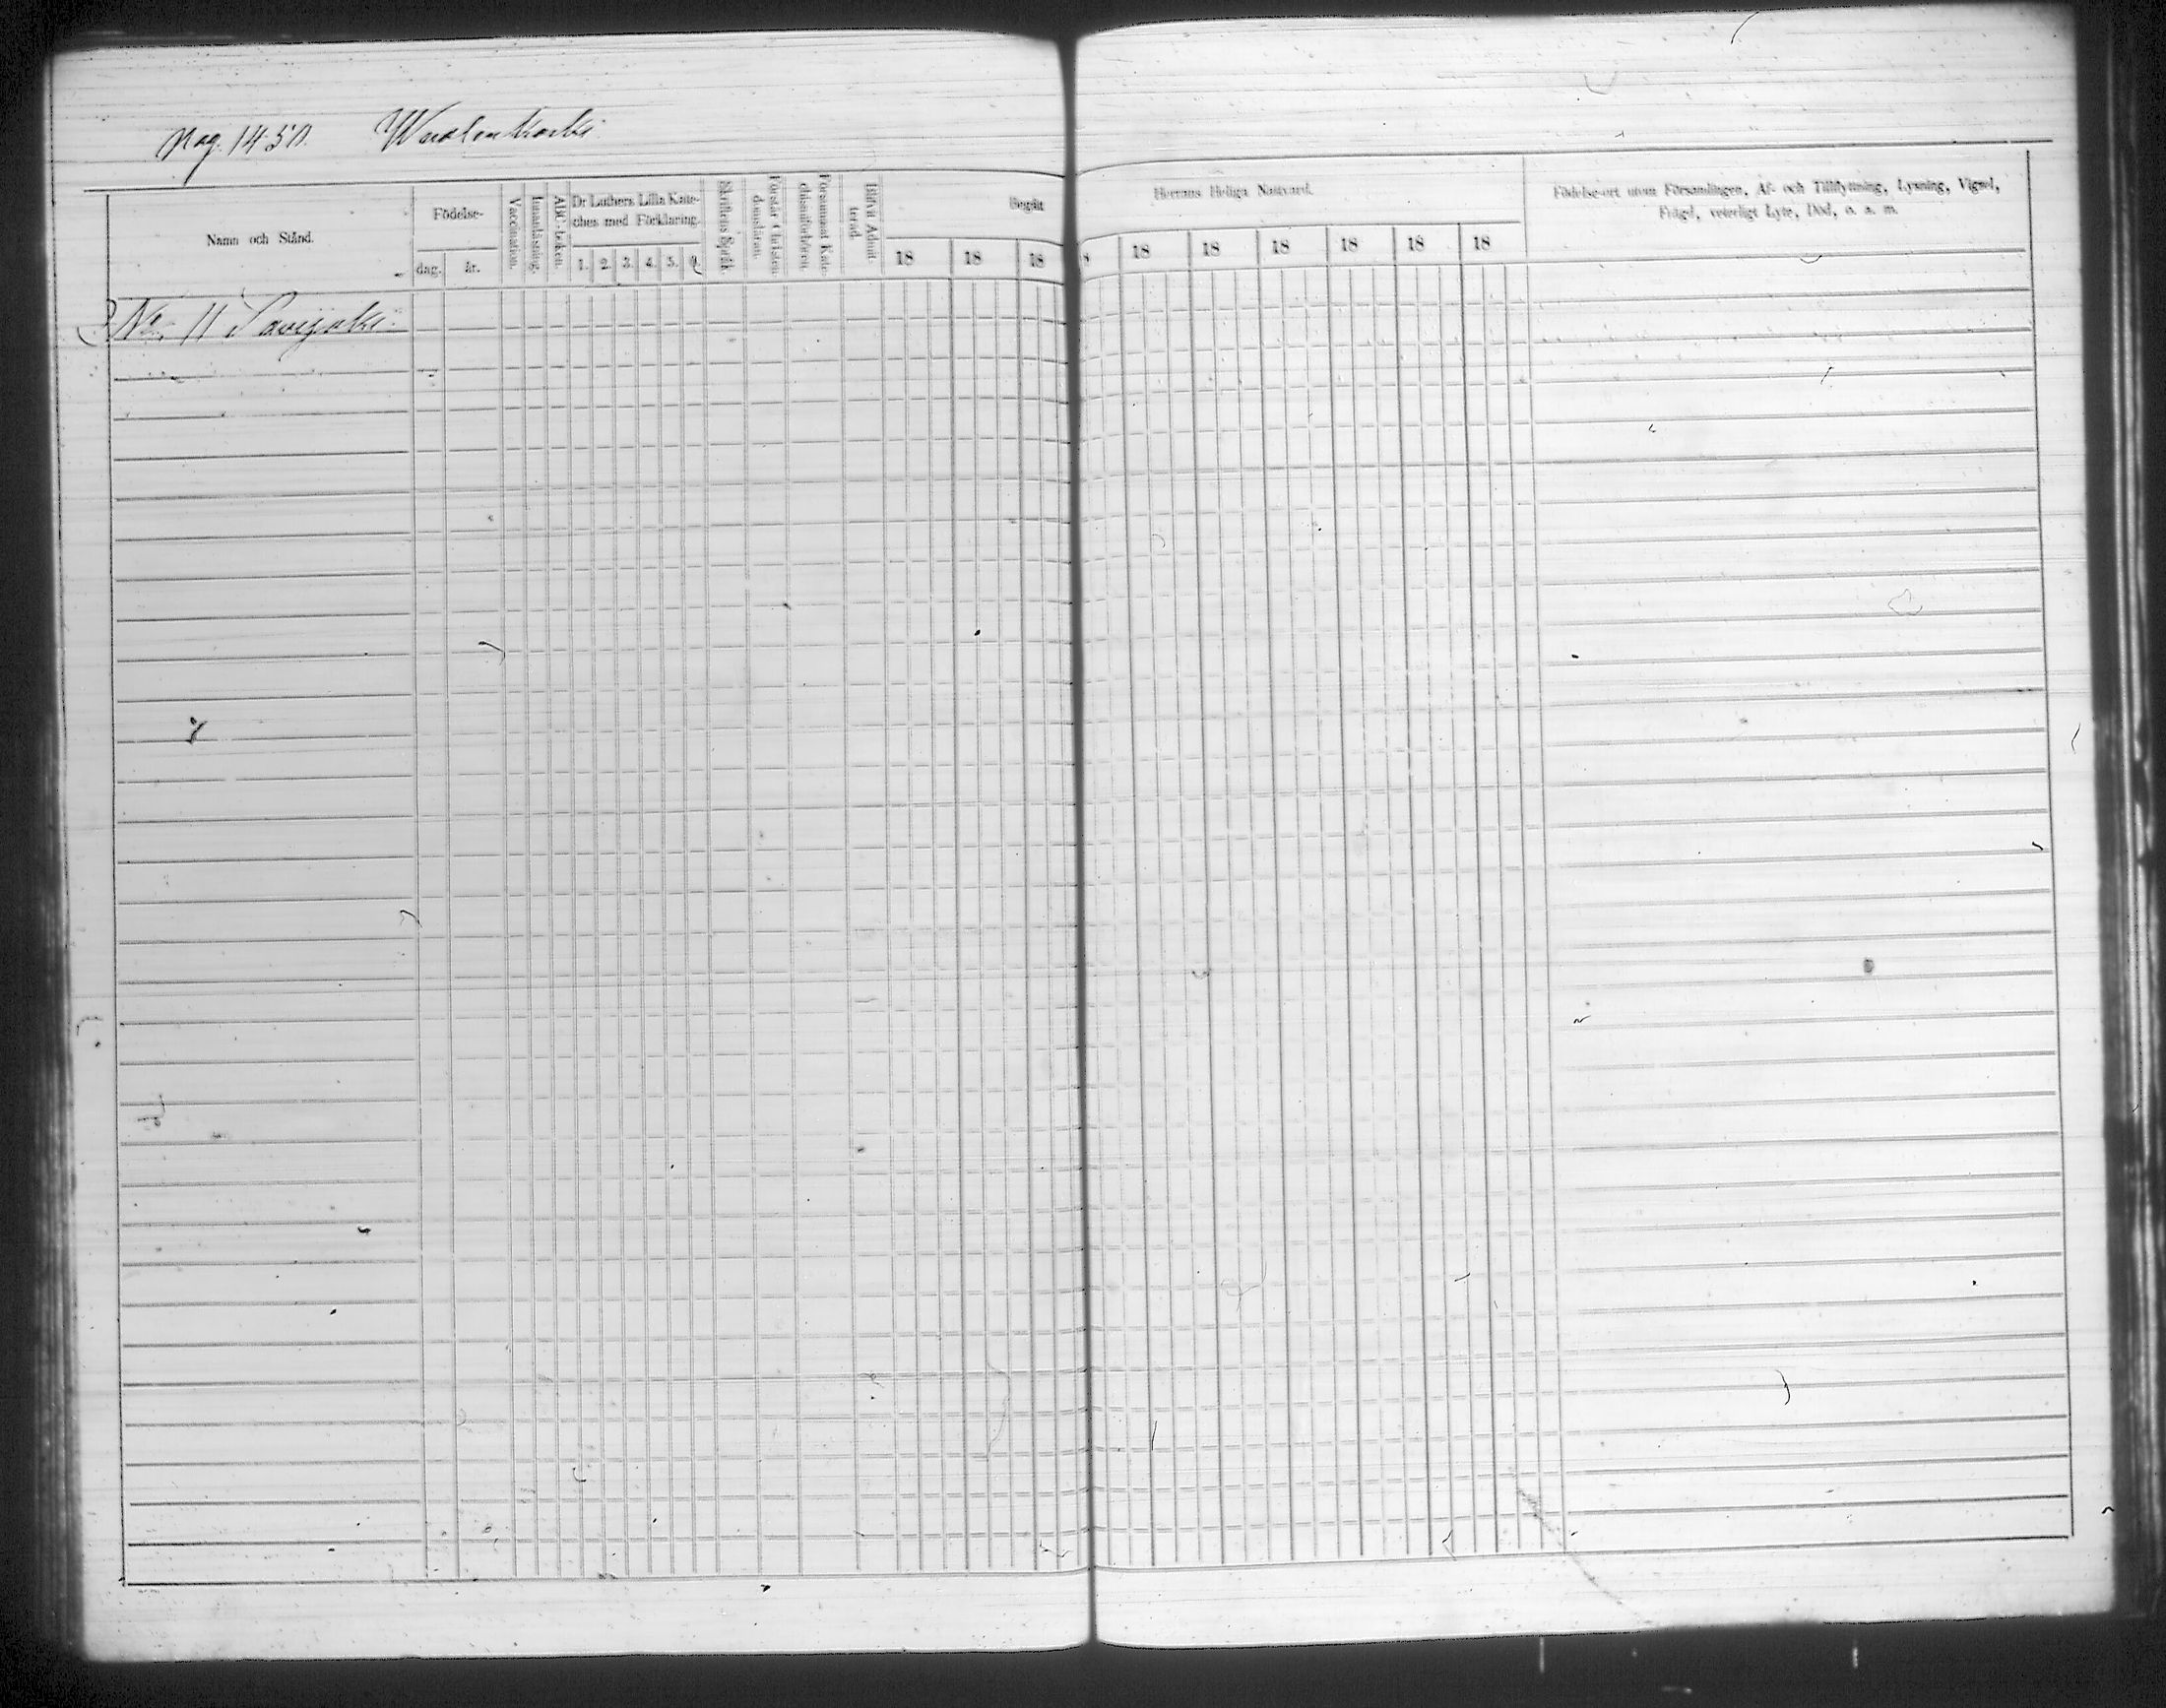 Pag. 1450. Wuolenkoski
Namn och Stånd.
Födelse-
dag. år.
Vaccination.
Innanläsning.
ABC-boken.
Dr Luthers Lilla Kate-
ches med Förklaring.
1. 2. 3. 4. 5.
Skriftens Språk.
Förstår Christen-
domsläran.
Försummat Kate-
chismiförhören.
Blifvit Admit-
terad.
Begått
Herrans Heliga Nattvard.
18 18 18 18 18 18 18 18 18
Födelse-ort utom Församlingen, Af- och Tillflyttning, Lysning, Vigsel,
Frägd, veterligt Lyte, Död, o. s. m.
No 11 Savijoki.